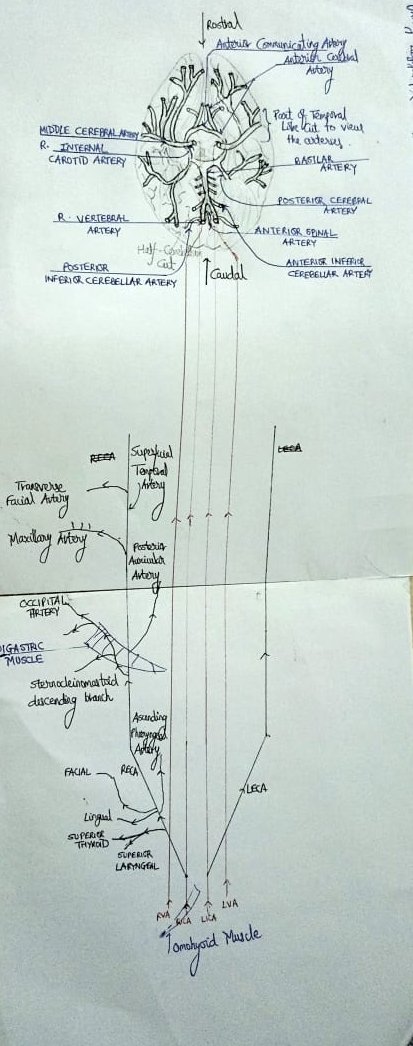 Rostral
Anterior Communicating Artery
Anterior Cerebral
Artery
Part of Temporal
Lobe Cut to view
the arteries.
MIDDLE CEREBRAL ARTERY
R. INTERNAL
CAROTID ARTERY
BASILAR
ARTERY
POSTERIOR CEREBRAL
ARTERY
R. VERTEBRAL
ARTERY
ANTERIOR SPINAL
ARTERY
Half-Cerebellum
Cut
POSTERIOR
INFERIOR CEREBELLAR ARTERY
Caudal
ANTERIOR INFERIOR
CEREBELLAR ARTERY
RECA
Superficial
Temporal
Artery
LECA
Transverse
Facial Artery
Maxillary Artery
Posterior
Auricular
Artery
OCCIPITAL
ARTERY
DIGASTRIC
MUSCLE
Sternocleinomastoid
descending branch
Ascending
Pharyngeal
Artery
FACIAL
RECA
LECA
Lingual
SUPERIOR
THYROID
SUPERIOR
LARYNGEAL
RVA
RICA
LICA
LVA
Omohyoid Muscle